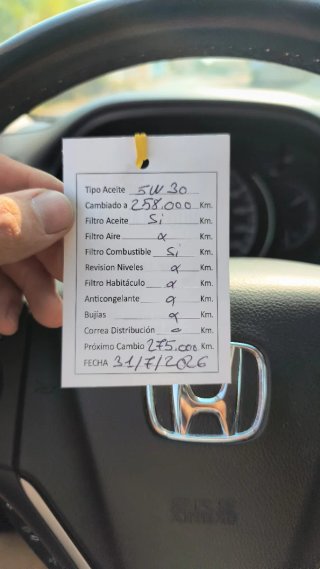 Tipo Aceite 5W30
Cambiado a 258.000 Km.
Filtro Aceite Si Km.
Filtro Aire Km.
Filtro Combustible Si Km.
Revision Niveles Km.
Filtro Habitáculo Km.
Anticongelante Km.
Bujías Km.
Correa Distribución Km.
Próximo Cambio 275.000 Km.
FECHA 31/7/2026